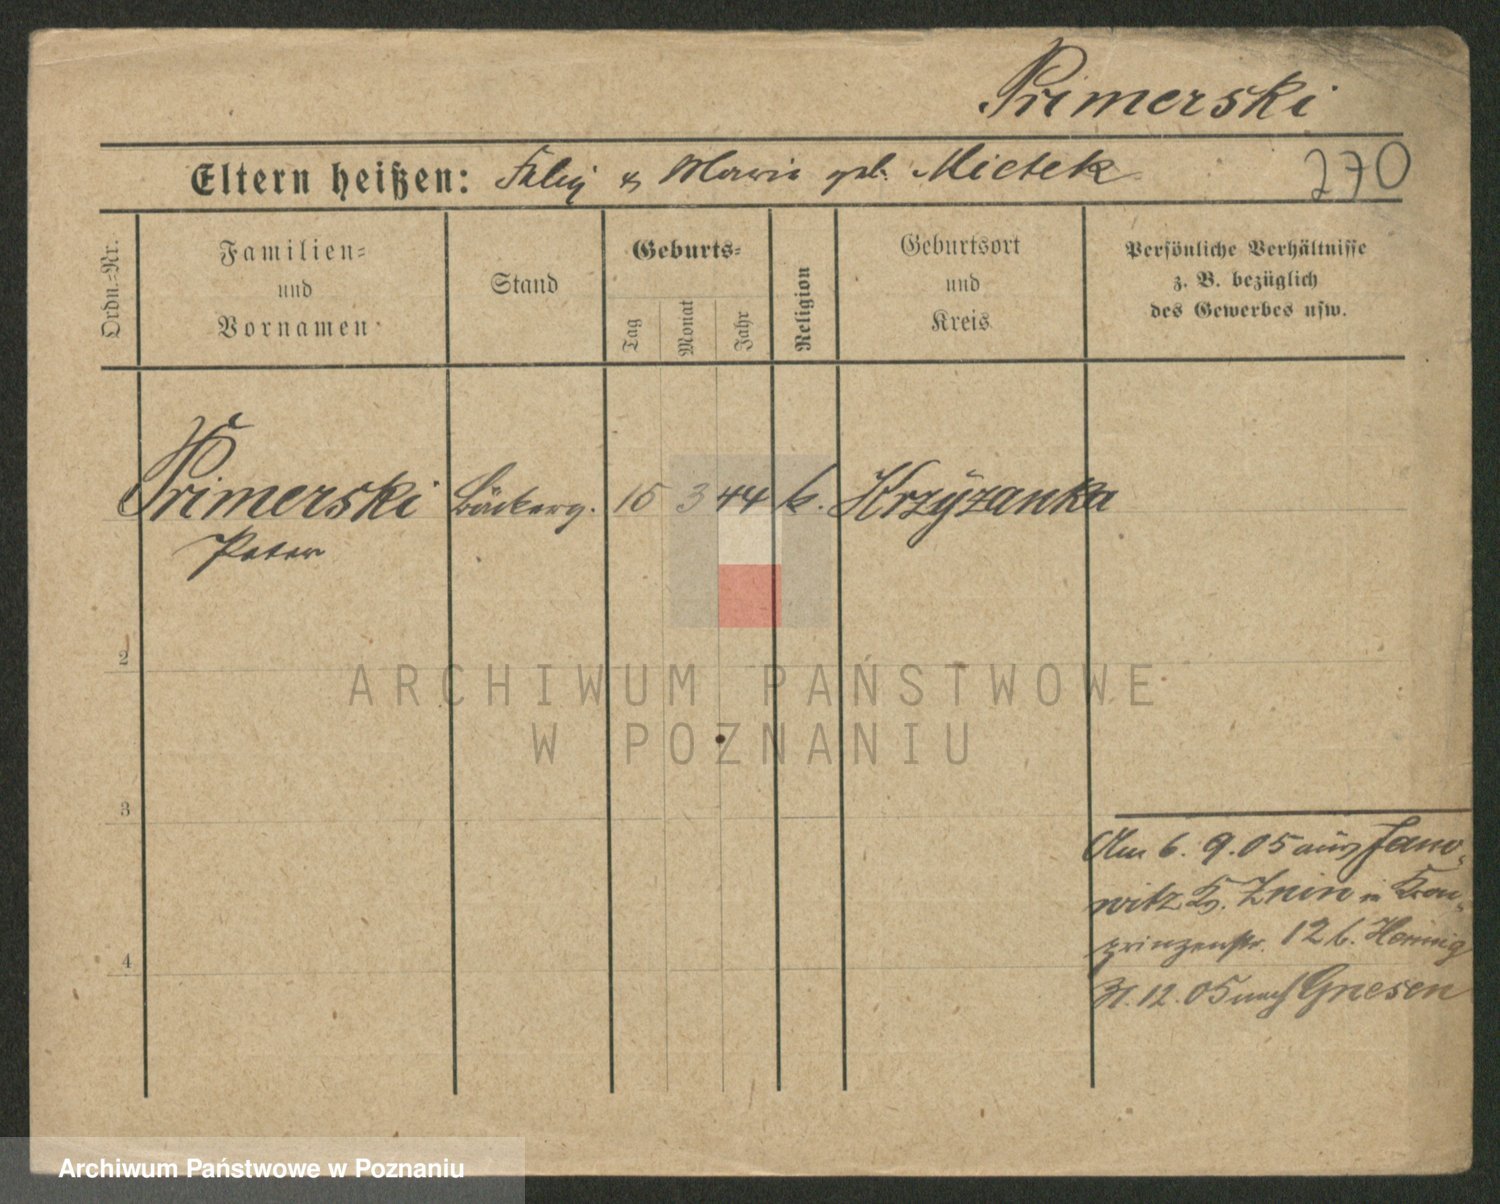 Primerski
Eltern heißen: Felix & Marie geb. Mietek
270
Ordn.-Nr.
Familien-
und
Vornamen
Stand
Geburts-
Tag
Monat
Jahr
Religion
Geburtsort
und
Kreis
Persönliche Verhältnisse
z. B. bezüglich
des Gewerbes usw.
Primerski Bäckerg. 15 3 44 k. Krzyzanka
Peter
2
ARCHIWUM PAŃSTWOWE
W POZNANIU
3
Am 6. 9. 05 aus Jano-
witz Kr. Znin in Kron-
prinzenstr. 12 b.
31. 12. 05 nach Gnesen
4
Archiwum Państwowe w Poznaniu